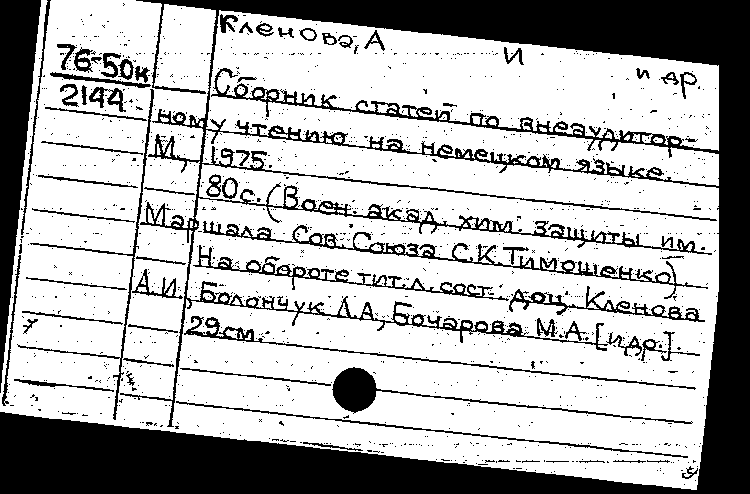 Кленова, А И и др.
76-50н
2144
Сборник статей по внеаудитор-
ному чтению на немецком языке.
М., 1975.
80с. (Воен. акад. хим. защиты им.
Маршала Сов. Союза С.К. Тимошенко).
На обороте тит. л. сост. доц. Кленова
А.И., Болончук Л.А, Бочарова М.А. [и др.].
29см.